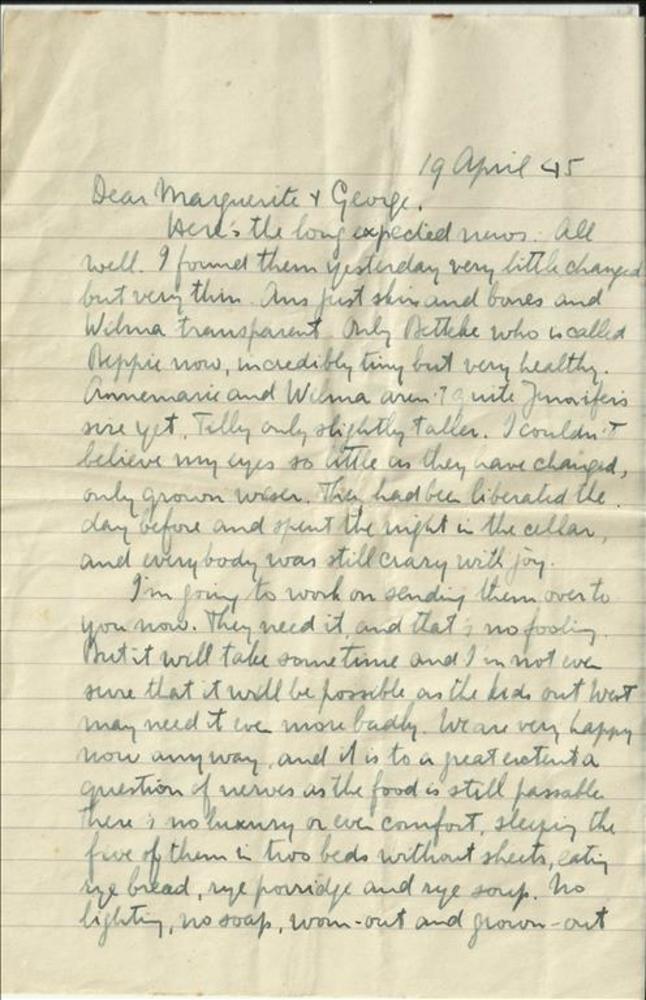 19 April 45
Dear Marguerite & George.
Here's the long expected news. All
well. I found them yesterday very little changed
but very thin. Ans just skin and bones and
Wilma transparent. Only Betteke who is called
Beppie now, incredibly tiny but very healthy.
Annemarie and Wilma aren't quite Jennifer's
size yet, Tilly only slightly taller. I couldn't
believe my eyes so little as they have changed,
only grown wiser. They had been liberated the
day before and spent the night in the cellar,
and everybody was still crazy with joy.
I'm going to work on sending them over to
you now. They need it, and that's no fooling.
But it will take some time and I'm not even
sure that it will be possible as the kids out West
may need it even more badly. We are very happy
now anyway, and it is to a great extent a
question of nerves as the food is still passable.
There's no luxury or even comfort, sleeping the
five of them in two beds without sheets, eating
rye bread, rye porridge and rye soup. No
lighting, no soap, worn-out and grown-out